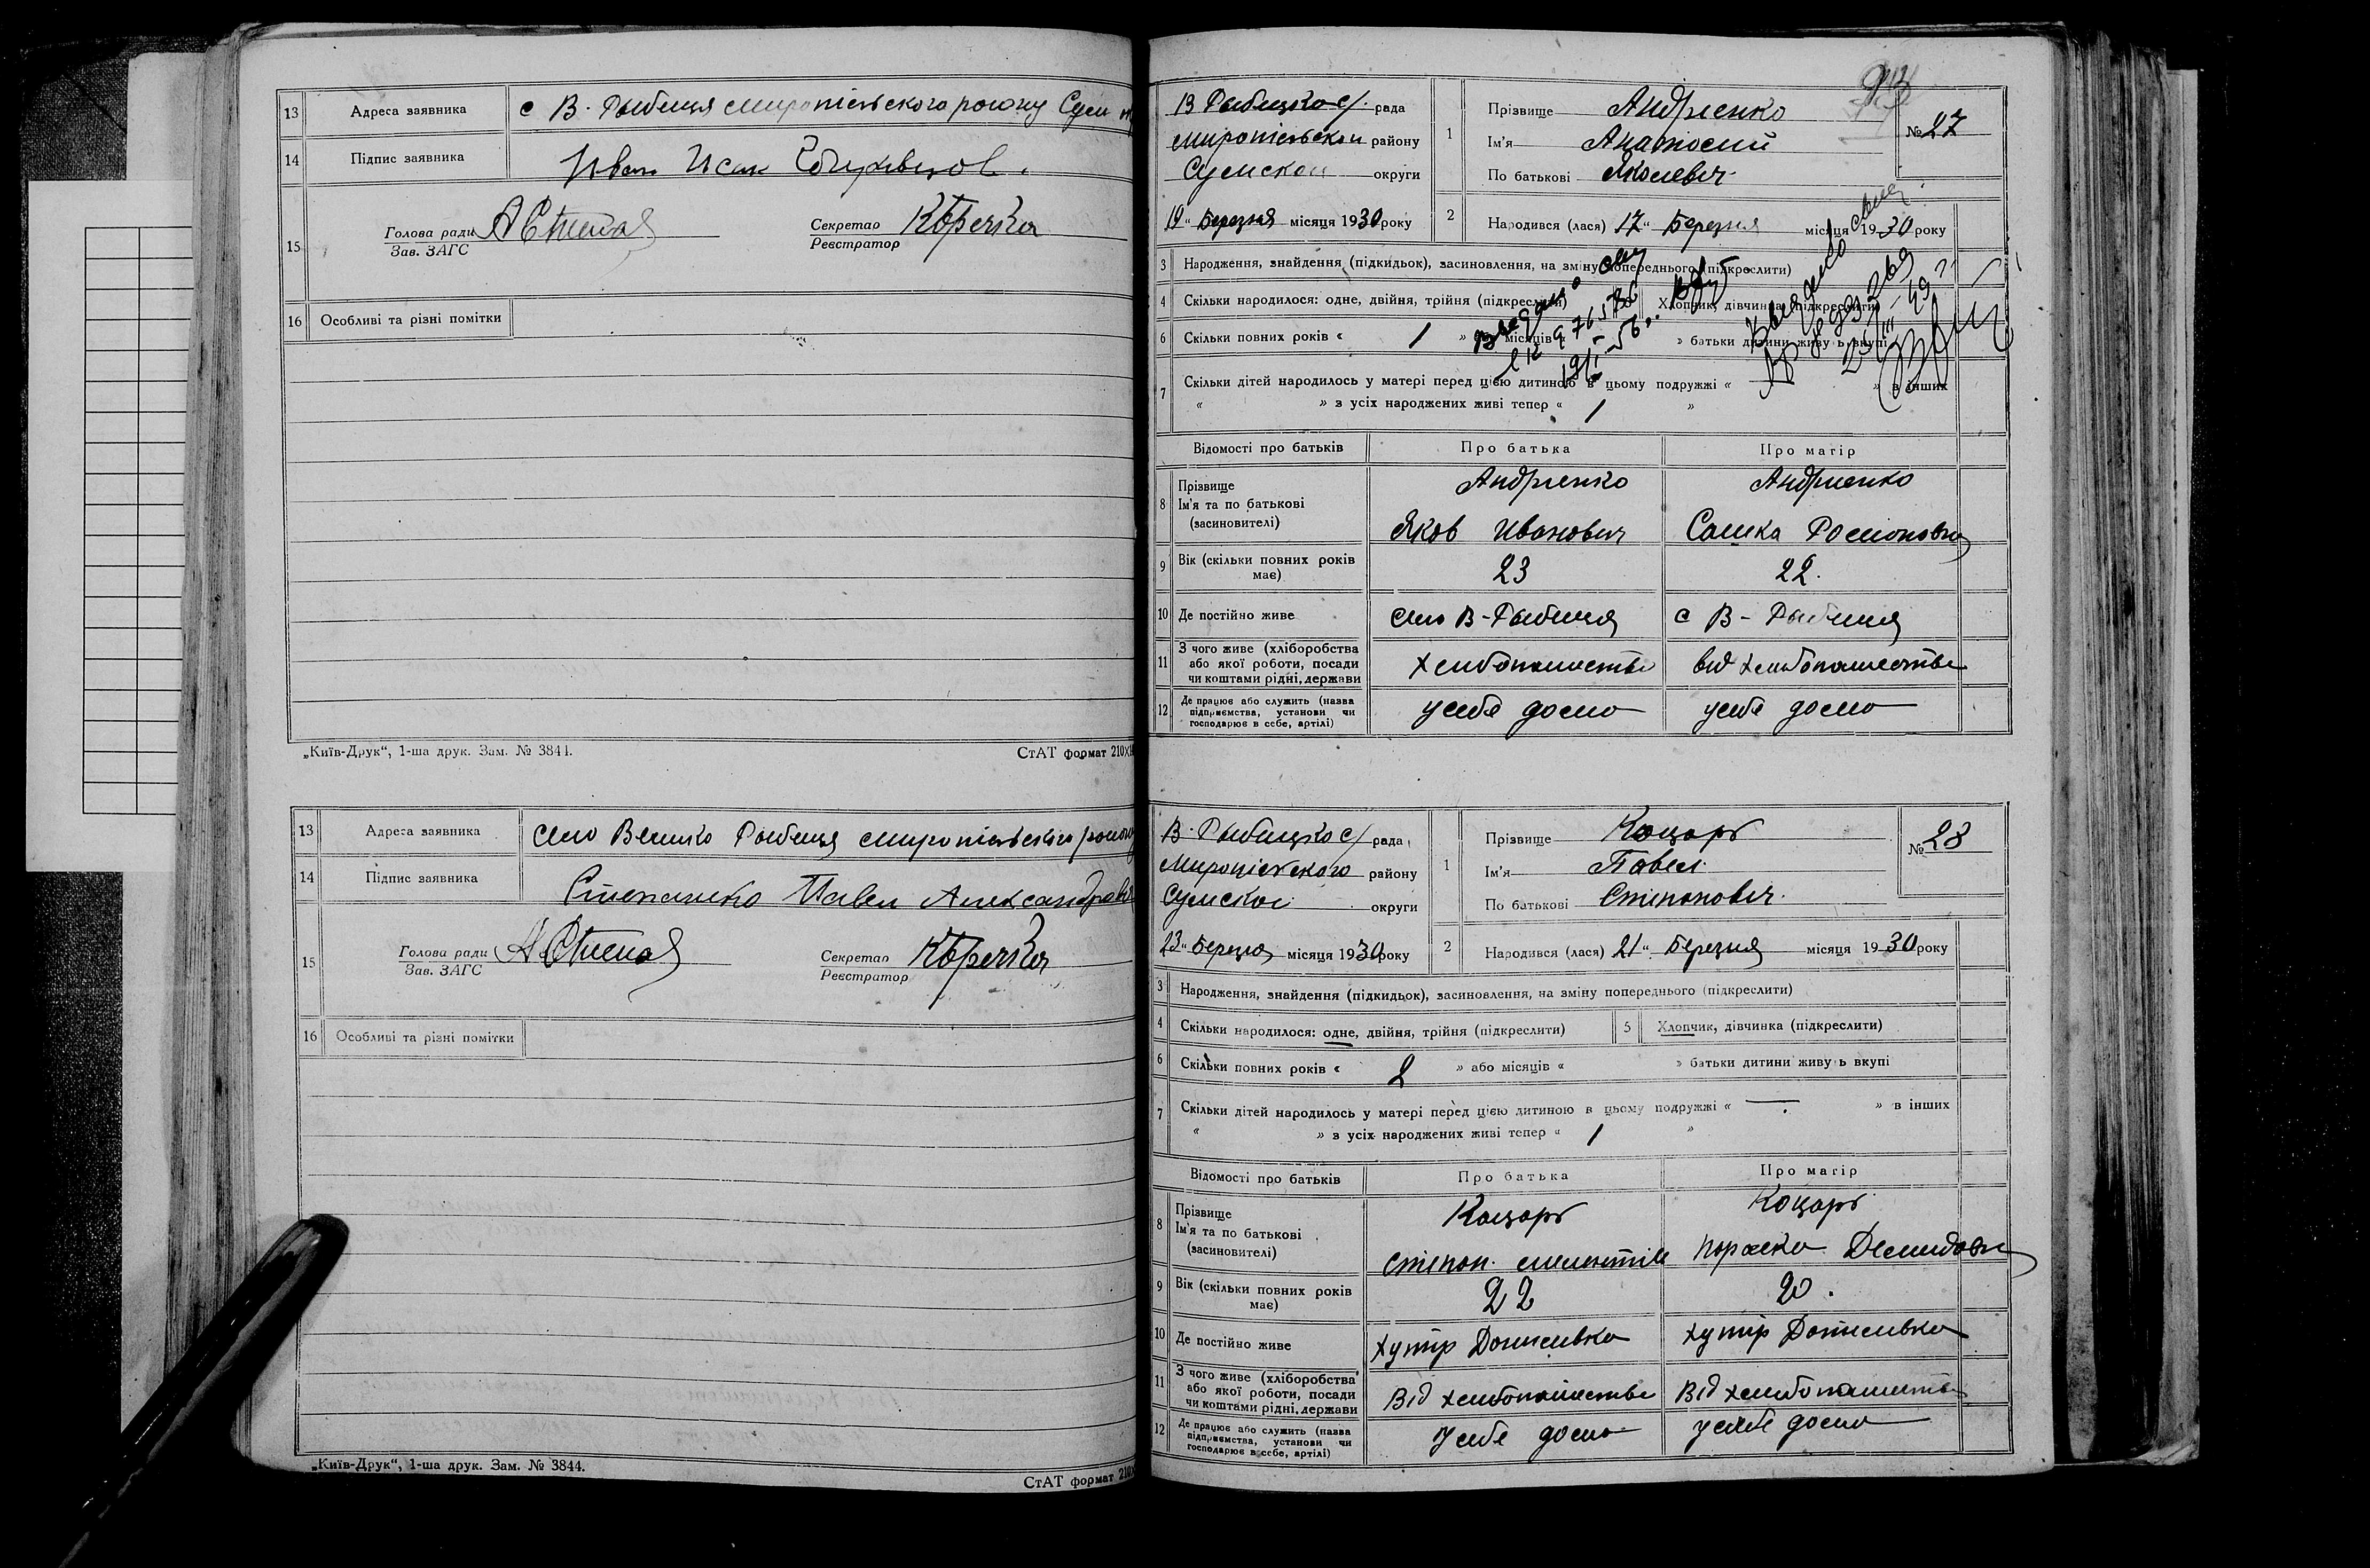 13 Адреса заявника с В. Рыбиця миропільського району Сум
14 Підпис заявника Иван Исак
15 Голова ради Секретар
Зав. ЗАГС Реєстратор
16 Особливі та різні помітки
„Київ-Друк“, 1-ша друк. Зам. № 3844. СтАТ формат 210х
13 Адреса заявника село Велико Рыбиця миропільського району
14 Підпис заявника Степаненко Павел Александрович
15 Голова ради Секретар
Зав. ЗАГС Реєстратор
16 Особливі та різні помітки
„Київ-Друк“, 1-ша друк. Зам. № 3844.
СтАТ формат 210х
В Рыбицко с/ рада
миропільскои району
Сумскои округи
19 „ Березня місяця 1930 року
1 Прізвище Андрієнко
Ім'я Анатосий
По батькові Яколевич
№ 27
2 Народився (лася) 17 „ Березня місяця 1930 року
3 Народження, знайдення (підкидьок), засиновлення, на зміну попереднього (підкреслити)
4 Скільки народилося: одне, двійня, трійня (підкреслити) Хлопчик, дівчинка (підкреслити)
6 Скільки повних років « 1 » або місяців « » батьки дитини живуть вкупі
7 Скільки дітей народилось у матері перед цією дитиною в цьому подружжі « — » в інших
« » з усіх народжених живі тепер « 1 »
Відомості про батьків Про батька Про матір
8 Прізвище Андрієнко Андриенко
Ім'я та по батькові
(засиновителі) Яков Иванович Сашка
9 Вік (скільки повних років має) 23 22.
10 Де постійно живе село В-Рыбиця с В - Рыбиця
11 З чого живе (хліборобства
або якої роботи, посади
чи коштами рідні, держави хлибопашества від хлибопашества
12 Де працює або служить (назва
підприємства, установи чи
господарює в себе, артілі) у себе дома у себе дома
В. Рыбицко с/ рада
Миропільского району
Сумскои округи
23 „ Березня місяця 1930 року
1 Прізвище Коцарь
Ім'я Павел
По батькові Степонович.
№ 28
2 Народився (лася) 21 „ Березня місяця 1930 року
3 Народження, знайдення (підкидьок), засиновлення, на зміну попереднього (підкреслити)
4 Скільки народилося: одне, двійня, трійня (підкреслити) 5 Хлопчик, дівчинка (підкреслити)
6 Скільки повних років « 2 » або місяців « » батьки дитини живуть вкупі
7 Скільки дітей народилось у матері перед цією дитиною в цьому подружжі « — » в інших
« » з усіх народжених живі тепер « 1 »
Відомості про батьків Про батька Про матір
8 Прізвище Коцарь Коцарь
Ім'я та по батькові
(засиновителі) Степон Параска Демидовна
9 Вік (скільки повних років має) 22 20.
10 Де постійно живе хутір хутір
11 З чого живе (хліборобства
або якої роботи, посади
чи коштами рідні, держави Від хлибопашества Від хлибопашества
12 Де працює або служить (назва
підприємства, установи чи
господарює в себе, артілі) У себе дома у себе дома